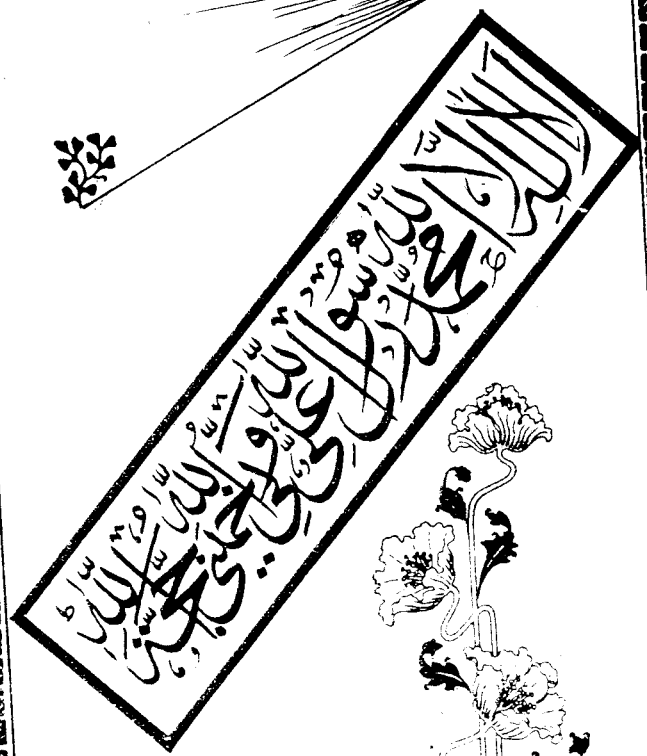 لا اله الا الله محمد رسول الله علی ولی الله خمینی حجة الله